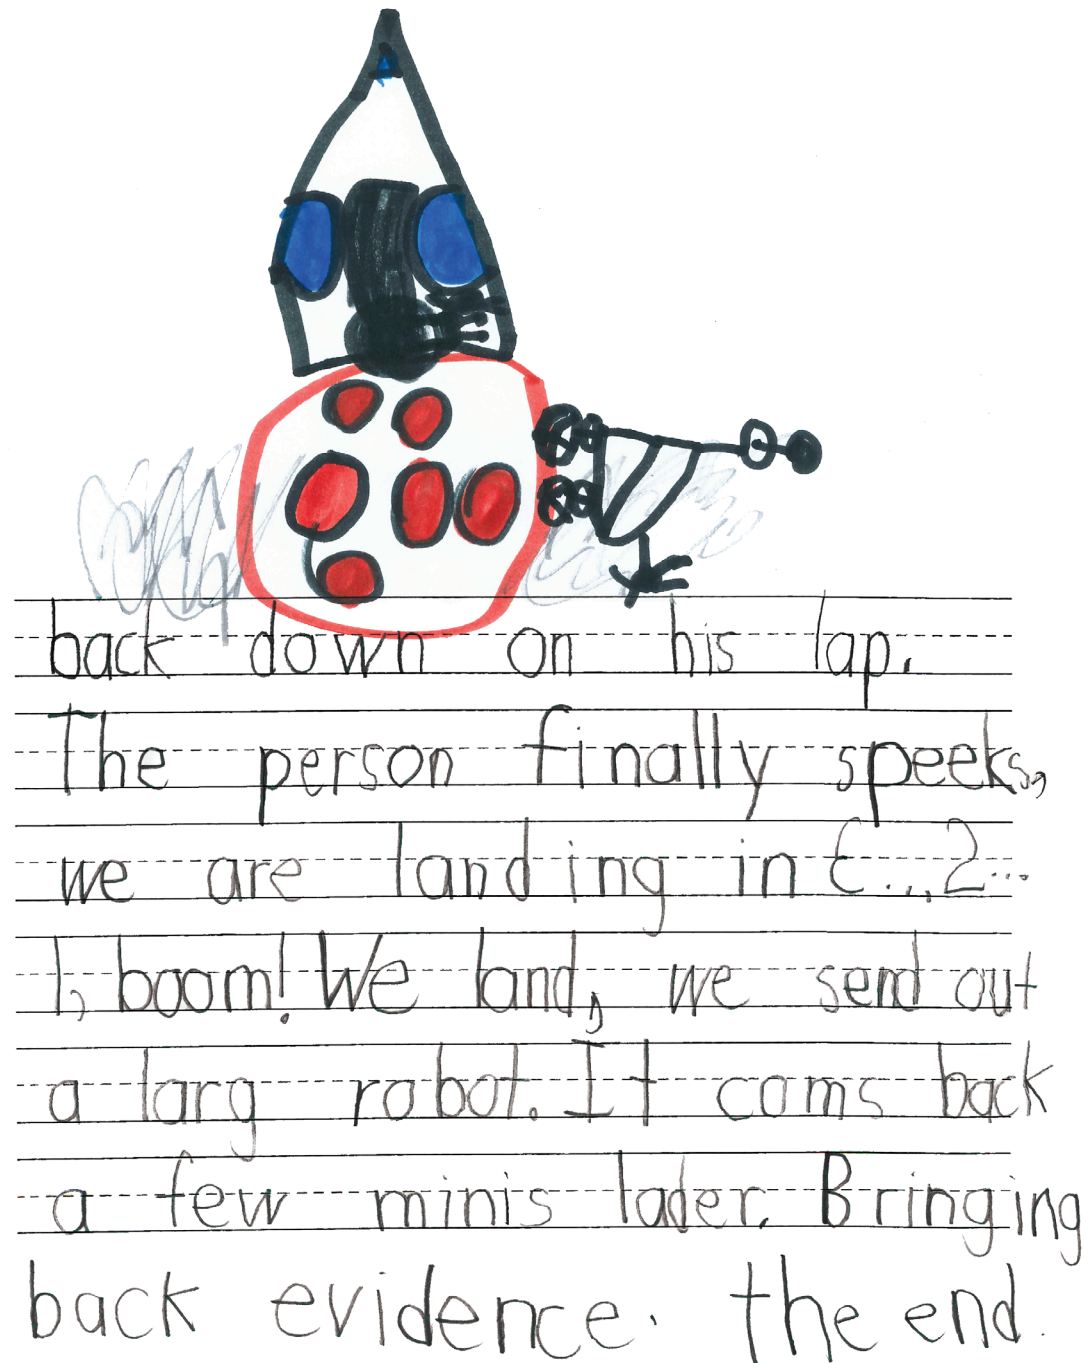 back down on his lap.
The person finally speeks,
we are landing in 3...2...
1, boom! We land, we send out
a larg robot. It coms back
a few minis lader. Bringing
back evidence. the end.